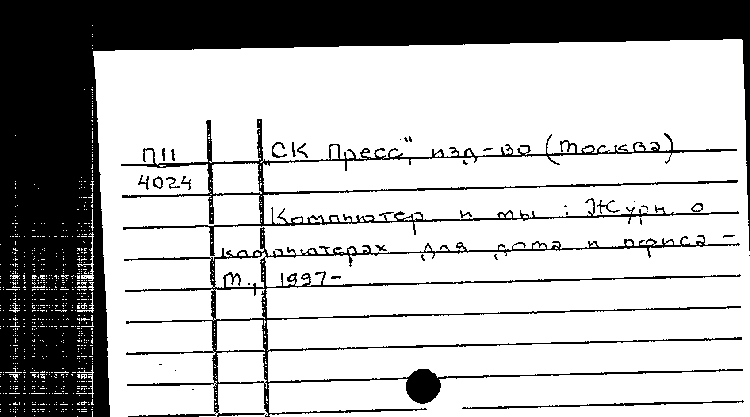 П11 „СК Пресс", изд-во (Москва)
4024
Компьютер и мы : Журн о
компьютерах для дома и офиса -
М., 1997-